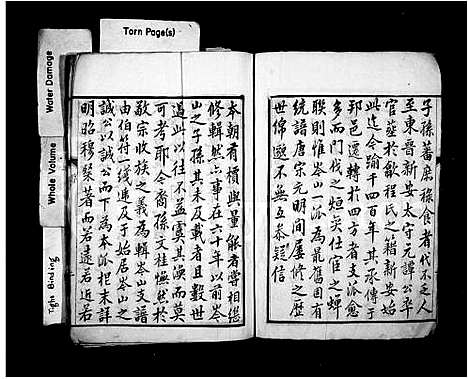 Torn Page(s)
Water Damage
Whole Volume
Tight Binding
子孫蕃庶祿食者代不乏人
至東晉新安太守元譚公卒
官葬於歙程氏之籍新安始
此迄今踰千四百年其承傳于
邦邑遷轉於四方者支派愈
多而門伐之烜奕仕宦之蟬
聯則惟岑山一派為冣舊固有
統譜唐宋元明間屢修之歴
世綿邈不無互参疑信
本朝有櫝與量能者尊相繼
修輯然六事在六十年以前岑
山之子孫其未及載者且數世
過此以往不益虞其渙而莫
可考耶令裔孫文桂慨然於
敬宗收族之義為輯岑山支譜
由伯符一綫遞及于始居岑山之
誠公以誠公而下為本派杞末詳
明昭穆粲著而若遠若近若